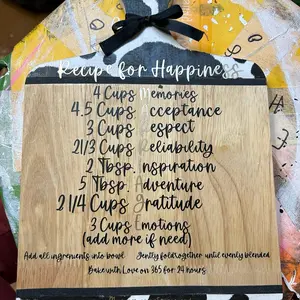 Recipe for Happiness
4 Cups Memories
4.5 Cups Acceptance
3 Cups Respect
2 1/3 Cups Reliability
2 Tbsp. Inspiration
5 Tbsp. Adventure
2 1/4 Cups Gratitude
3 Cups Emotions
(add more if need)
Add all ingrenients into bowl Gently fold together until evenly blended
Bake with Love on 365 for 24 hours